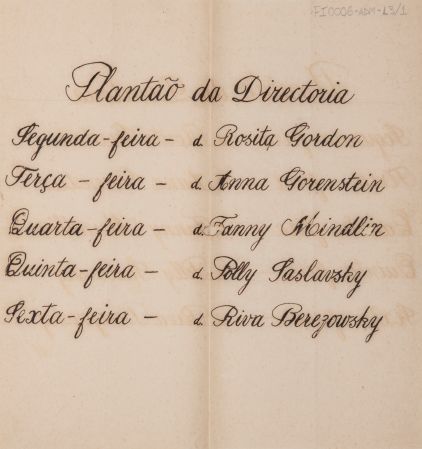 FI0006-ADM-13/1
Plantão da Directoria
Segunda-feira - d. Rosita Gordon
Terça - feira - d. Anna Gorenstein
Quarta-feira - d. Fanny Mindlin
Quinta-feira - d. Polly Saslavsky
Sexta-feira - d. Riva Berezowsky